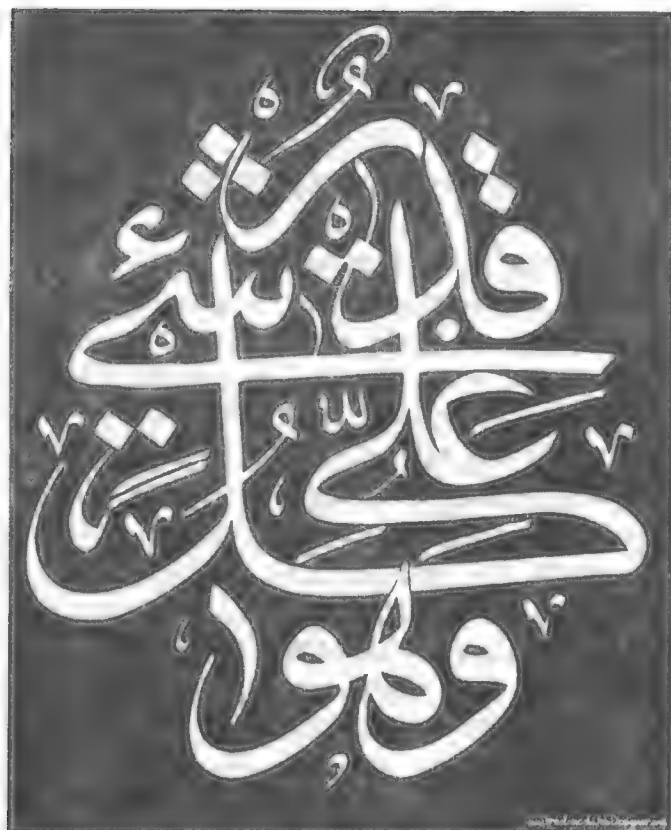 وهوا على كل شئ قدير